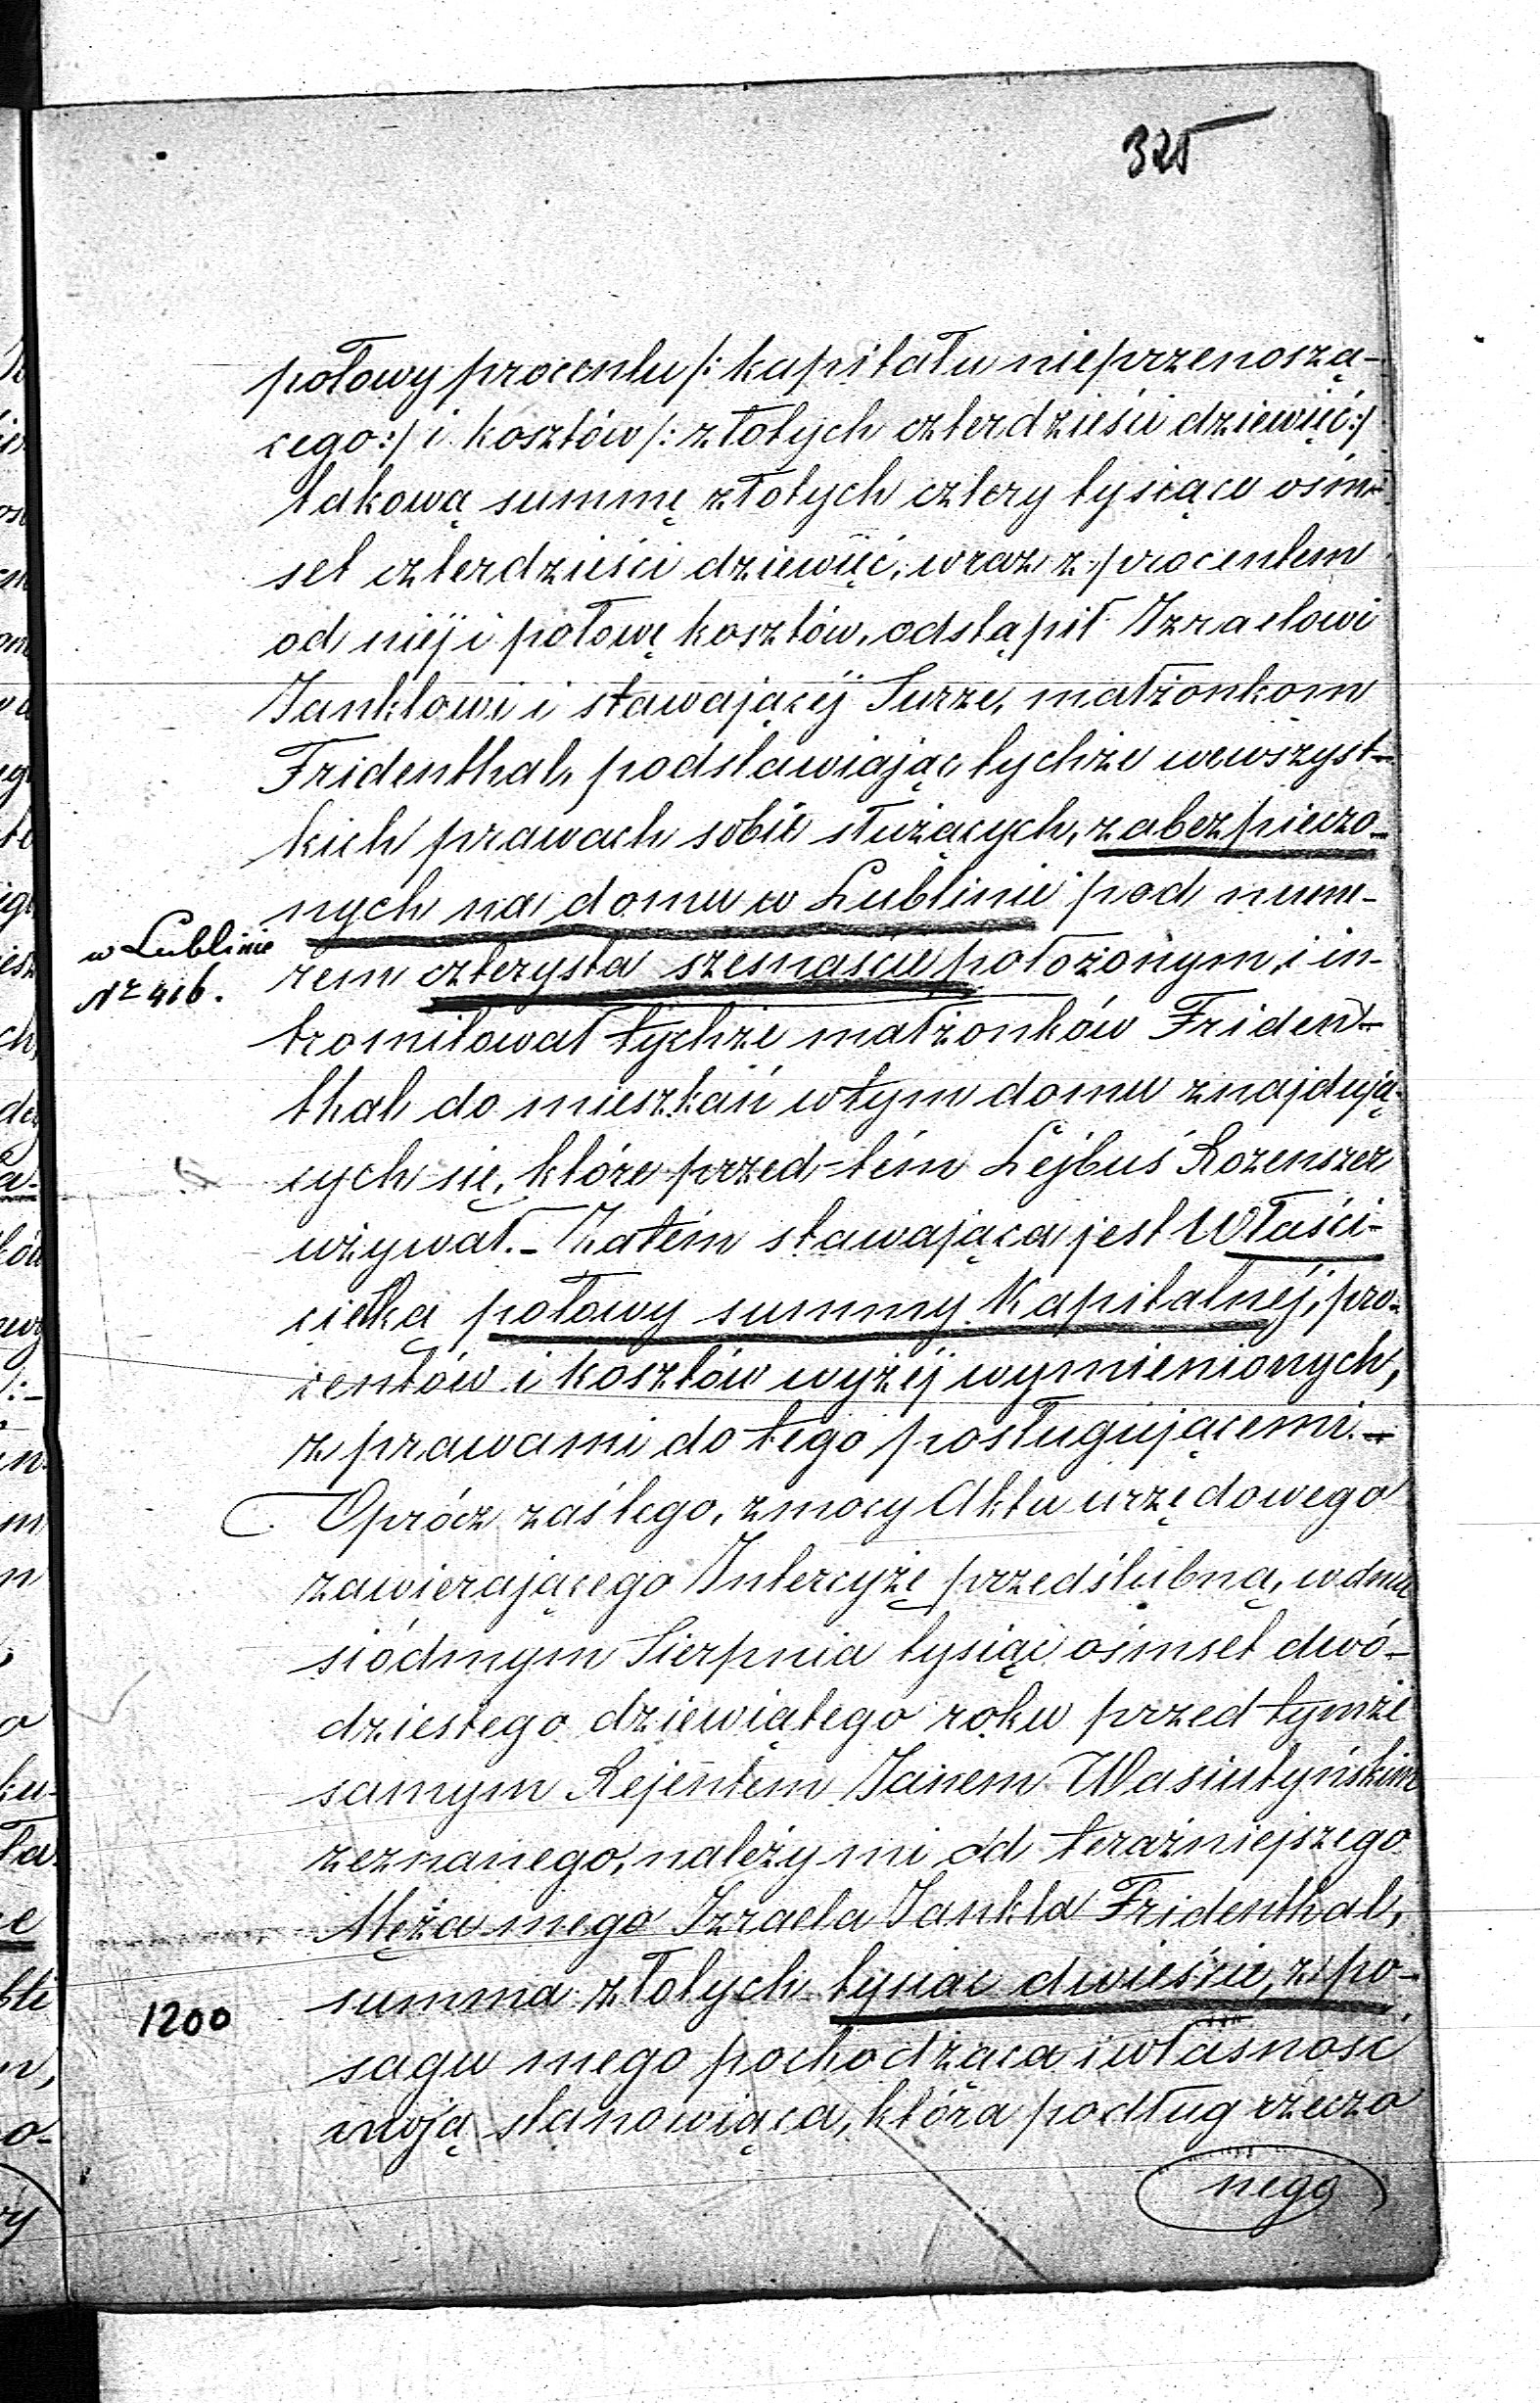 325
połowy procentu /: kapitału nieprzenoszą-
cego :/ i kosztów /: złotych czterdzieści dziewięć :/
takową summę złotych cztery tysiące ośm-
set czterdzieści dziewięć, wraz z procentem
od niéj i połowę kosztów, odstąpił Izraelowi
Jankłowi i stawającéj Surze, małżonkom
Fridenthal, podstawiając tychże wewszyst-
kich prawach sobie służących, zabezpieczo-
nych na domu w Lublinie pod nume-
w Lublinie
Nr 416.
rem czterysta szesnaście położonym, i in-
tromitował tychże małżonków Friden-
thal do mieszkań wtym domu znajdują-
cych się, które przed-tém Lejbuś Rozenszer
używał. – Zatém stawająca jest Właści-
cielką połowy summy Kapitalnéj, pro-
centów i kosztów wyżéj wymienionych,
z prawami do tego posługującemi. –
Oprócz zaś tego, zmocy Aktu urzędowego
zawierającego Intercyzę przedślubną, wdniu
siódmym Sierpnia tysiąc ośmset dwó-
dziestego dziewiątego roku przed tymże
samym Rejentem Janem Wasiutyńskim
zeznanego, należy mi od teraźniejszego
Męża mego Izraela Jankla Fridenthal,
summa złotych tysiąc dwieście, z po-
1200
sagu mego pochodząca i własność
moją stanowiąca, która podług rzeczo
nego